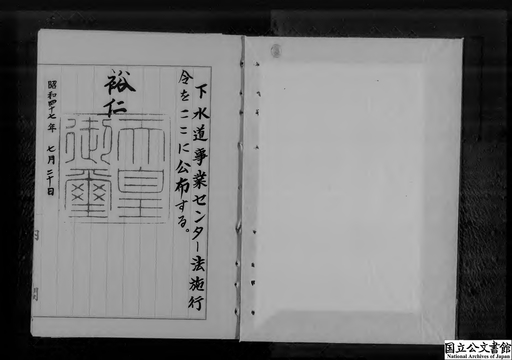 下水道事業センター法施行
令をここに公布する。
裕仁
天皇
御璽
昭和四十七年 七月 二十日
国立公文書館
National Archives of Japan